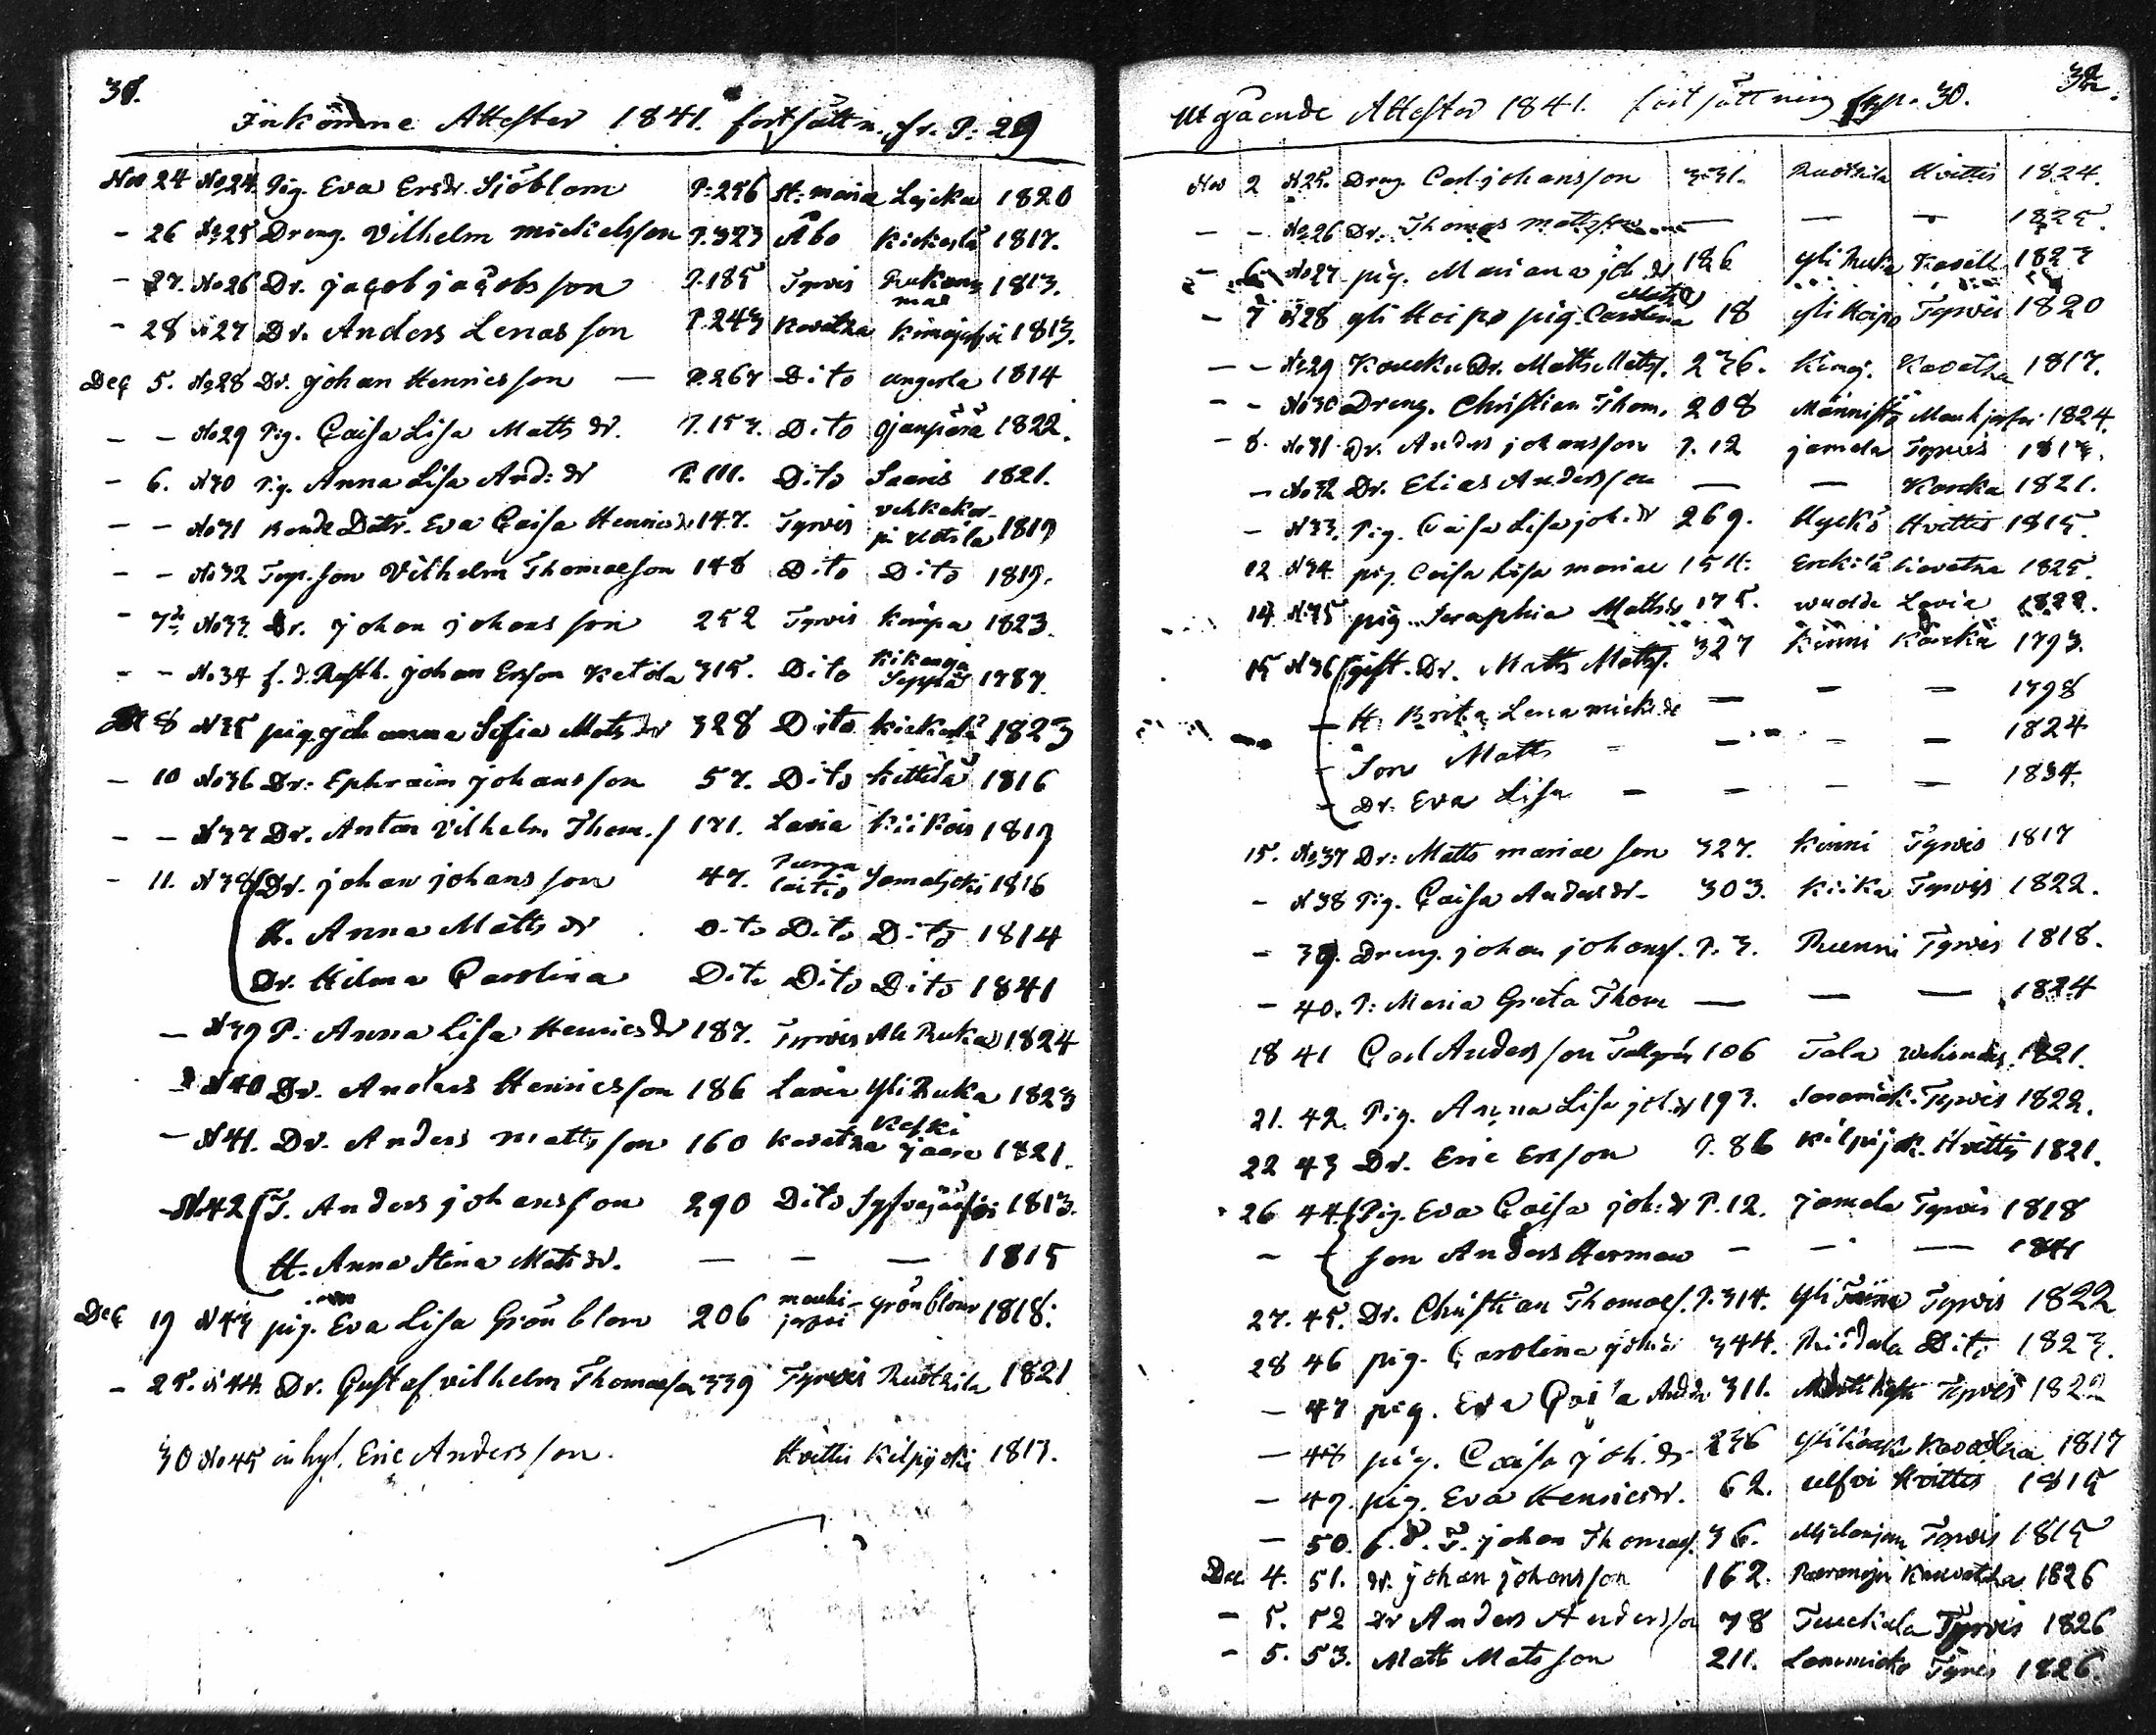 31.
Inkomne Attester 1841. fortsättn. fr. P. 29
Nov 24 No24 Pig. Eva Ersdr. Sjöblom P. 296 St. maria Lejcka 1820
- 26 No25 Dreng. Vilhelm mickelsson P. 323 Åbo Kickerlä 1817.
- 27. No26 Dr. jacob jacobsson P. 185 Tyrvis 1813.
- 28 N27 Dr. Anders Lenasson P. 243 Kovatka 1813.
Dec 5. No28 Dr. johan Henricsson — P. 267 Dito ongerla 1814
- - No29 Pig. Caisa Lisa Matts dr. P. 153. Dito 1822.
- 6. N30 Pig. Anna Lisa And: dr P. 111. Dito Saaris 1821.
- - No31 Bonde Dotr. Eva Caisa Henricsdr 147. Tyrvis 1819
- - No32 Torp. son Vilhelm Thomasson 148 Dito Dito 1819.
- 7de No33 Dr. johan johansson 252 Tyrvis Kimpa 1823.
- - No34 f. d. Rusth. johan Ersson Ketola 315. Dito 1787.
8 N35 pig. johanna Sofia Mats dr 328 Dito 1823
- 10 No36 Dr: Ephraim johansson 57. Dito Kittilä 1816
- - N37 Dr. Anton Vilhelm Thom. s 171. Lavia Kiikois 1819
- 11. N38 Dr. johan johansson 47. Punga laitio 1816
H. Anna Matts dr Dito Dito Dito 1814
Dr. Hilma Carolina Dito Dito Dito 1841
- N39 P. Anna Lisa Henricsdr 187. Tyrvis Ali Ruka 1824
- N40 Dr. Anders Henricsson 186 Lavia Yli Ruka 1823
- N41. Dr. Anders mattsson 160 Kovatka Keski jaara 1821.
- N42 T. Anders johansson 290 Dito 1813.
H. Anna Stina Mats dr. — — — 1815
Dec 19 N43 pig. Eva Lisa Grönblom 206 mouhi- jerfvi Grönblom 1818.
- 29. N44 Dr. Gustaf vilhelm Thomasson 339 Tyrvis Ruotsila 1821
30 No45 inhys. Eric Andersson. Hvittis Kilpijoki 1813.
32.
Utgående Attester 1841. fortsättning fr. p. 30.
Nov 2 N25. Dreng. Carl johansson 331. Ruotsila Hvittis 1824.
- - No26 Dr. Thomas mattsson — — — 1825.
- 6 No27 pig. Mariana joh. dr 186 yli Ruka 1823
- 7 N28 yli Hoipo pig. Carolina Matsdr 18 yli Hoipo Tyrvis 1820
- - No29 Koucku Dr. Matts Matss. 236. Kimaj. Kovatka 1817.
- - No30 Dreng. Christian Thom. 208 Männistö Mouhjerfvi 1824.
- 8. No31 Dr. Anders johansson P. 12 jamala Tyrvis 1813.
- No32 Dr. Elias Andersson — — Karcku 1821.
- N33. Pig. Caisa Lisa joh. dr 269. Hyckö Hvittis 1815.
12 N34 pig. Caisa Lisa mariae 154. Erckilä Kovatka 1825.
14 N35 pig. Seraphia Mattsdr 175. Lavia 1822.
15 N36 gift. Dr. Matts Matss. 327 Kinni Karcku 1793.
- H. Brita Lena mick. dr — — — 1798
- Son Matts - — - — 1824
- Dr. Eva Lisa - — - — 1834.
15. No37 Dr: Matts mariae son 327. Kinni Tyrvis 1817
- N38 Pig. Caisa Anders dr. 303. Kiika Tyrvis 1822.
- 39. Dreng. johan johanss. P. 3. Tyrvis 1818.
- 40. P: Maria Greta Thom — — — 1824
18 41 Carl Andersson Tallgrén 106 Tala 1821.
21. 42. Pig. Anna Lisa joh. dr 193. Tyrvis 1822.
22 43 Dr. Eric Ersson P. 86 Kilpijok. Hvittis 1821.
26 44. Pig. Eva Caisa joh: dr P. 12. jamala Tyrvis 1818
- son Anders Herman - — — 1841
27. 45. Dr. Christian Thomass. P. 314. Tyrvis 1822
28 46 pig. Carolina joh. dr 344. Dito 1823.
- 47 pig. Eva Caisa And. dr 311. Tyrvis 1822
- 48 pig. Caisa joh. dr 236 Kovatka 1817
- 49. pig. Eva Henricsdr. 62. Hvittis 1815
- 50. f. d. T. johan Thomass. 36. Tyrvis 1815
Dec 4. 51. dr. johan johansson 162. Kouvatka 1826
- 5. 52 dr Anders Andersson 78 Tyrvis 1826
- 5. 53. Matts Matsson 211. Tyrvis 1826.